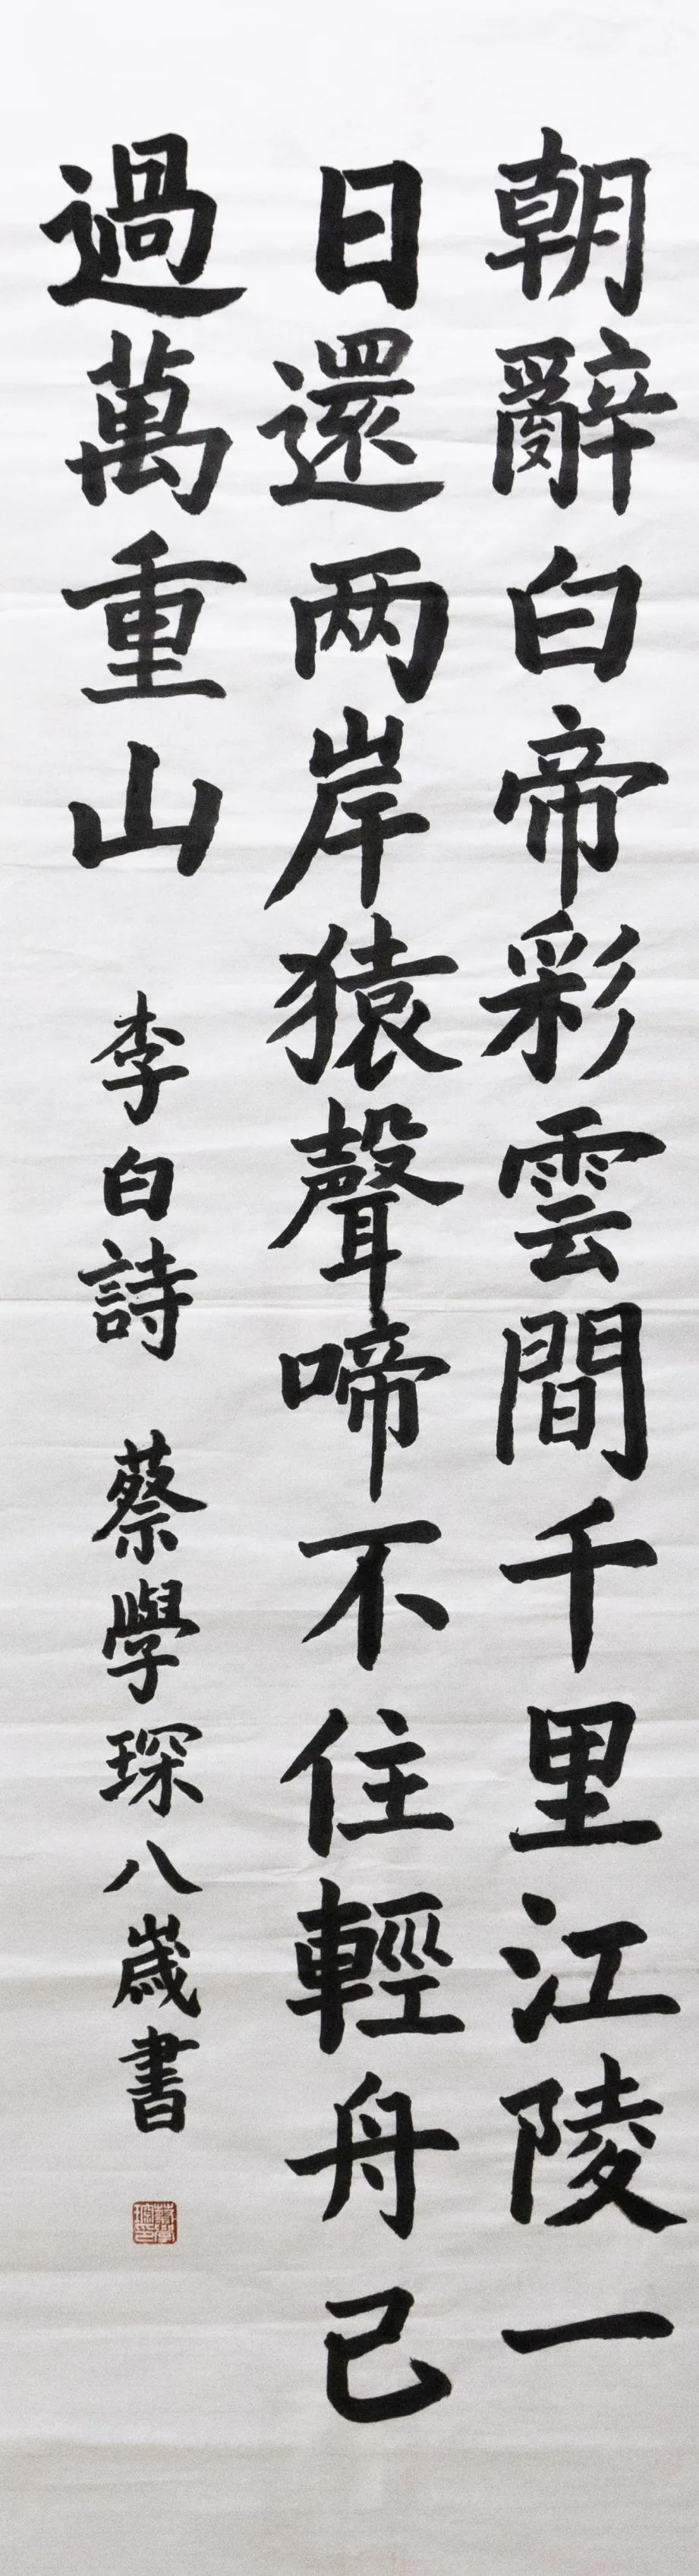 朝辭白帝彩雲間千里江陵一
日還两岸猿聲啼不住輕舟已
過萬重山 李白詩 蔡學琛八歲書
蔡學琛印